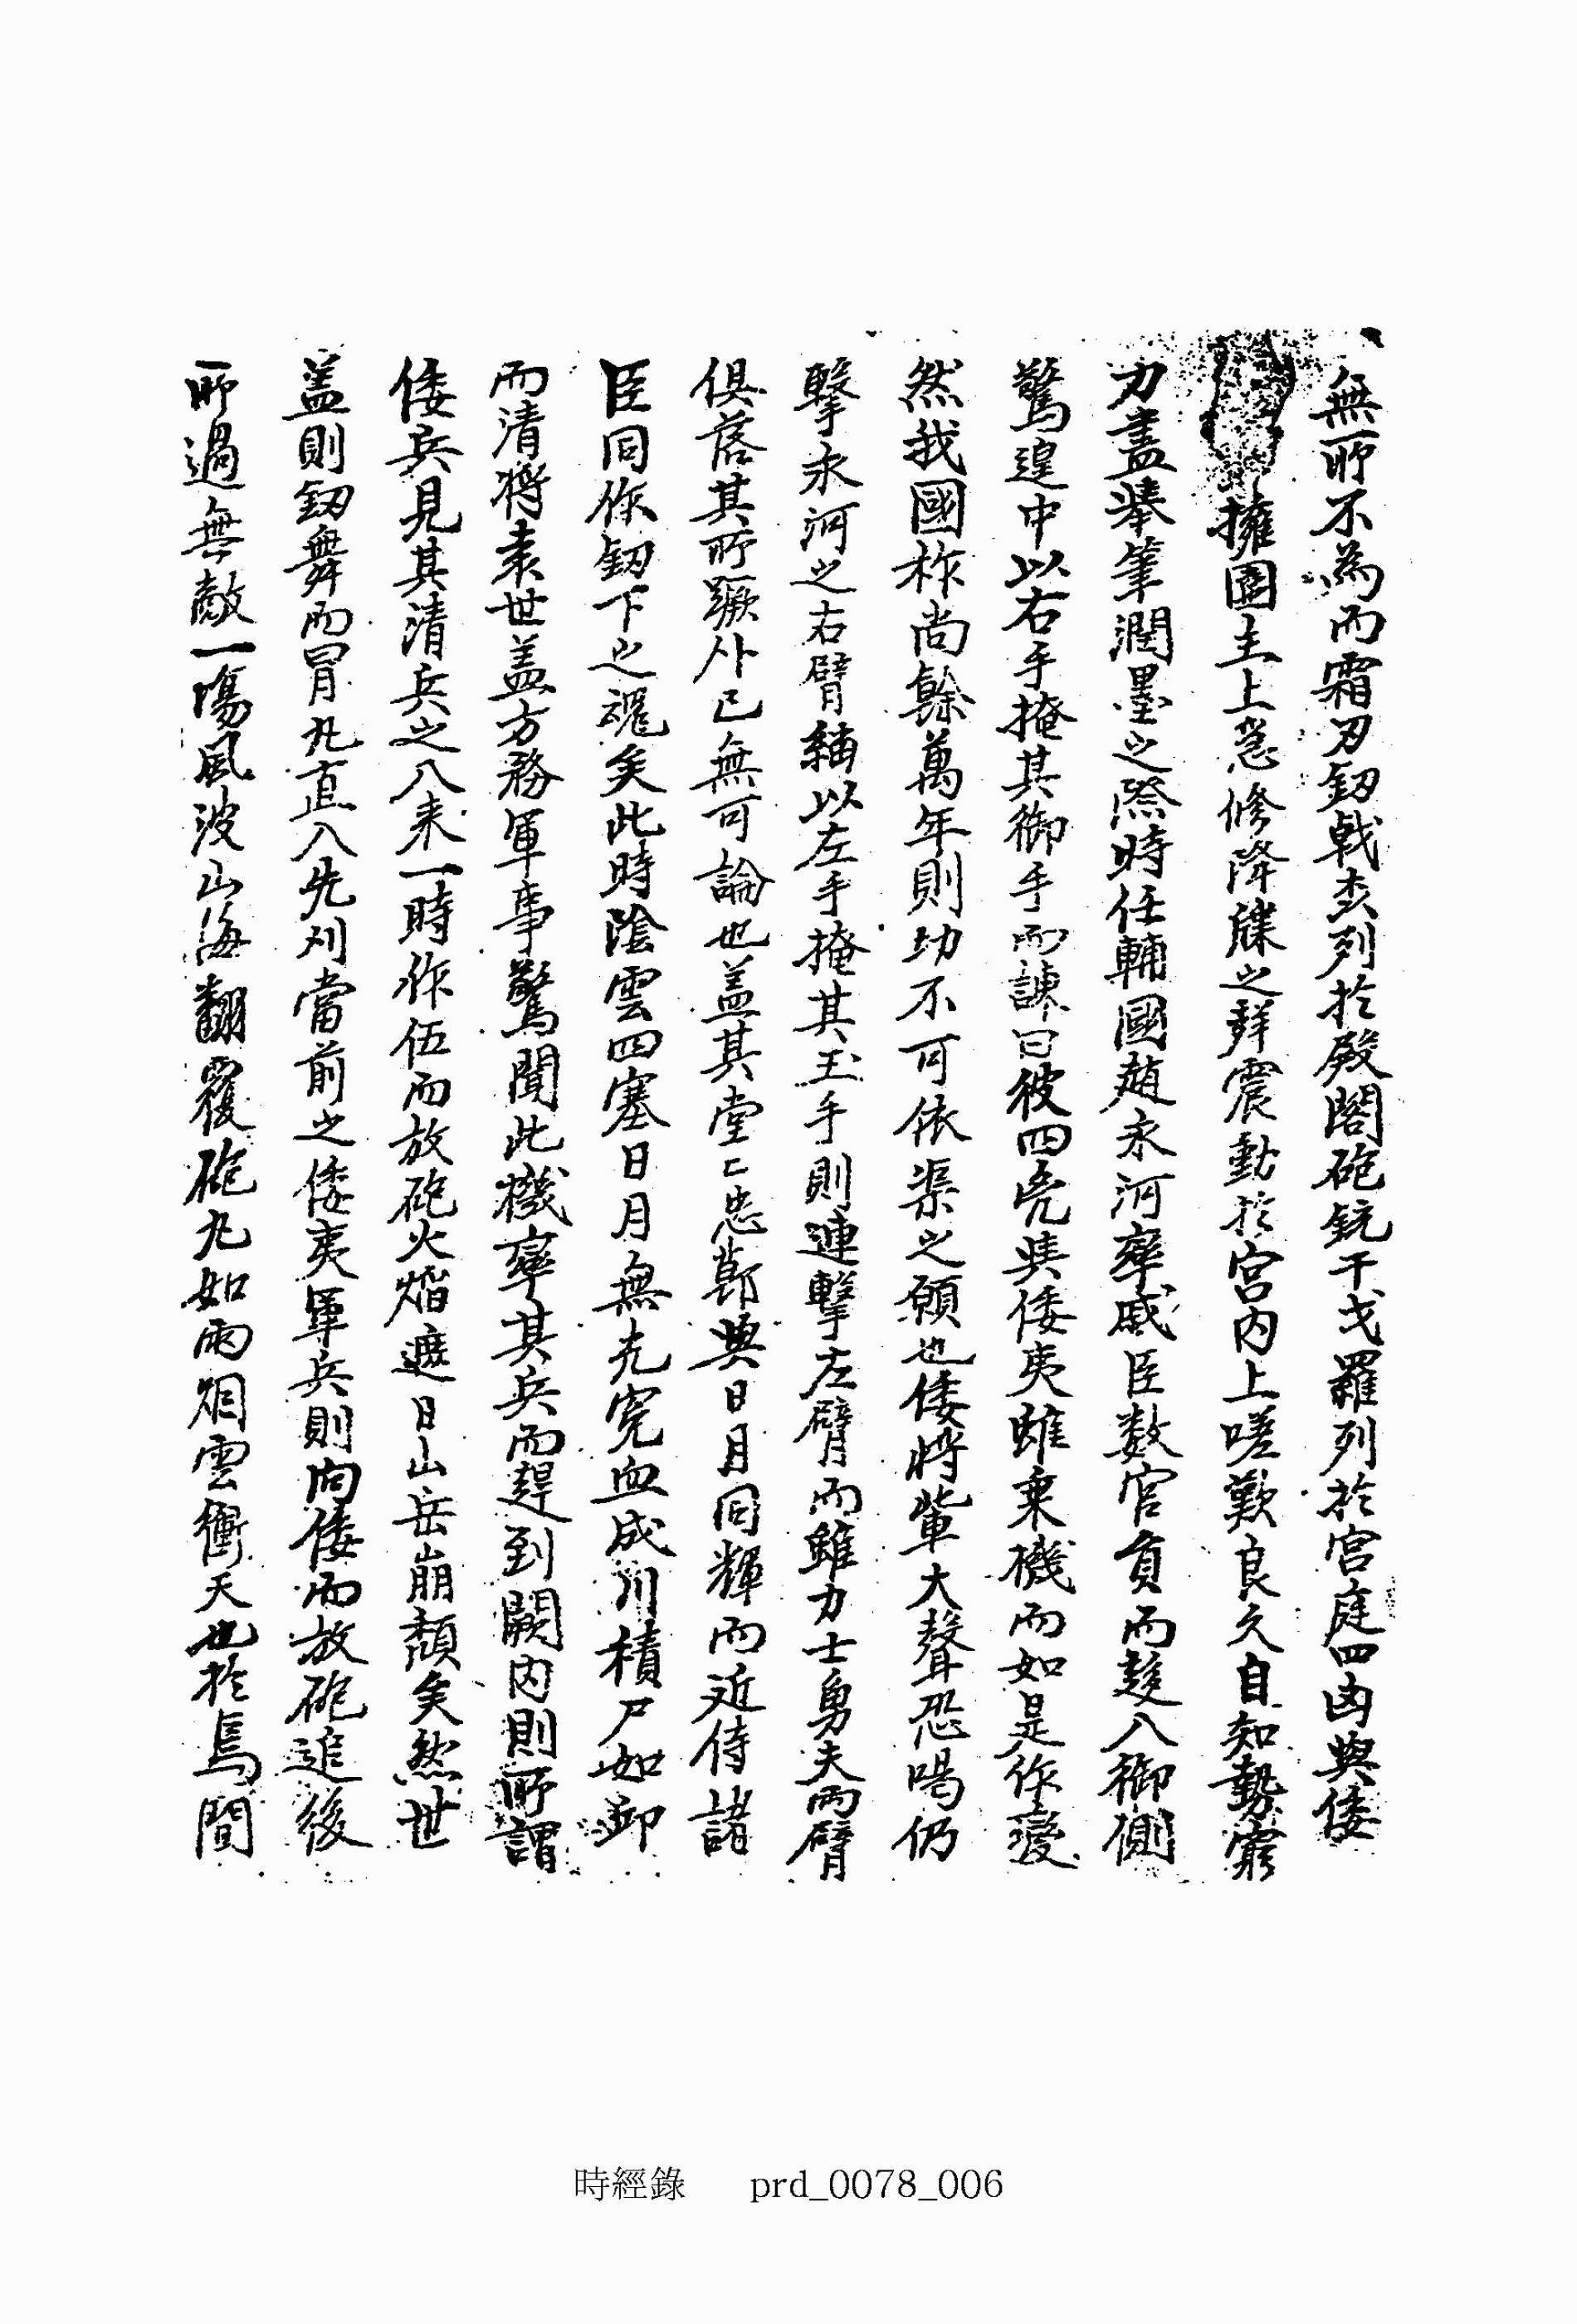 無所不為而霜刃釼戟森列於殿閣砲銃干戈羅列於宮庭四凶與倭
擁圍主上急修降牒之聲震動於宮內上嗟歎良久自知勢窮
力盡擧筆潤墨之際時任輔國趙永河率戚臣数官負而趍入御側
驚遑中以右手掩其御手而諫曰彼四兇與倭夷雖乗機而如是作變
然我國祚尚餘萬年則切不可依渠之願也倭將輩大聲恐喝仍
擊永河之右臂緬以左手掩其玉手則連擊左臂而雖力士勇夫兩臂
俱落其所蹶仆已無可論也盖其堂〻忠節與日月同輝而近侍諸
臣同作釼下之魂矣此時陰雲四塞日月無光寃血成川積尸如卸
而清將袁世盖方務軍事驚聞此機率其兵而趕到闕內則所謂
倭兵見其清兵之入来一時作伍而放砲火焰遮日山岳崩頹矣然世
盖則釼舞而冒丸直入先刈當前之倭夷軍兵則向倭而放砲追後
所過無敵一場風波山海翻覆砲丸如雨烟雲衝天也於焉間
時經錄 prd_0078_006